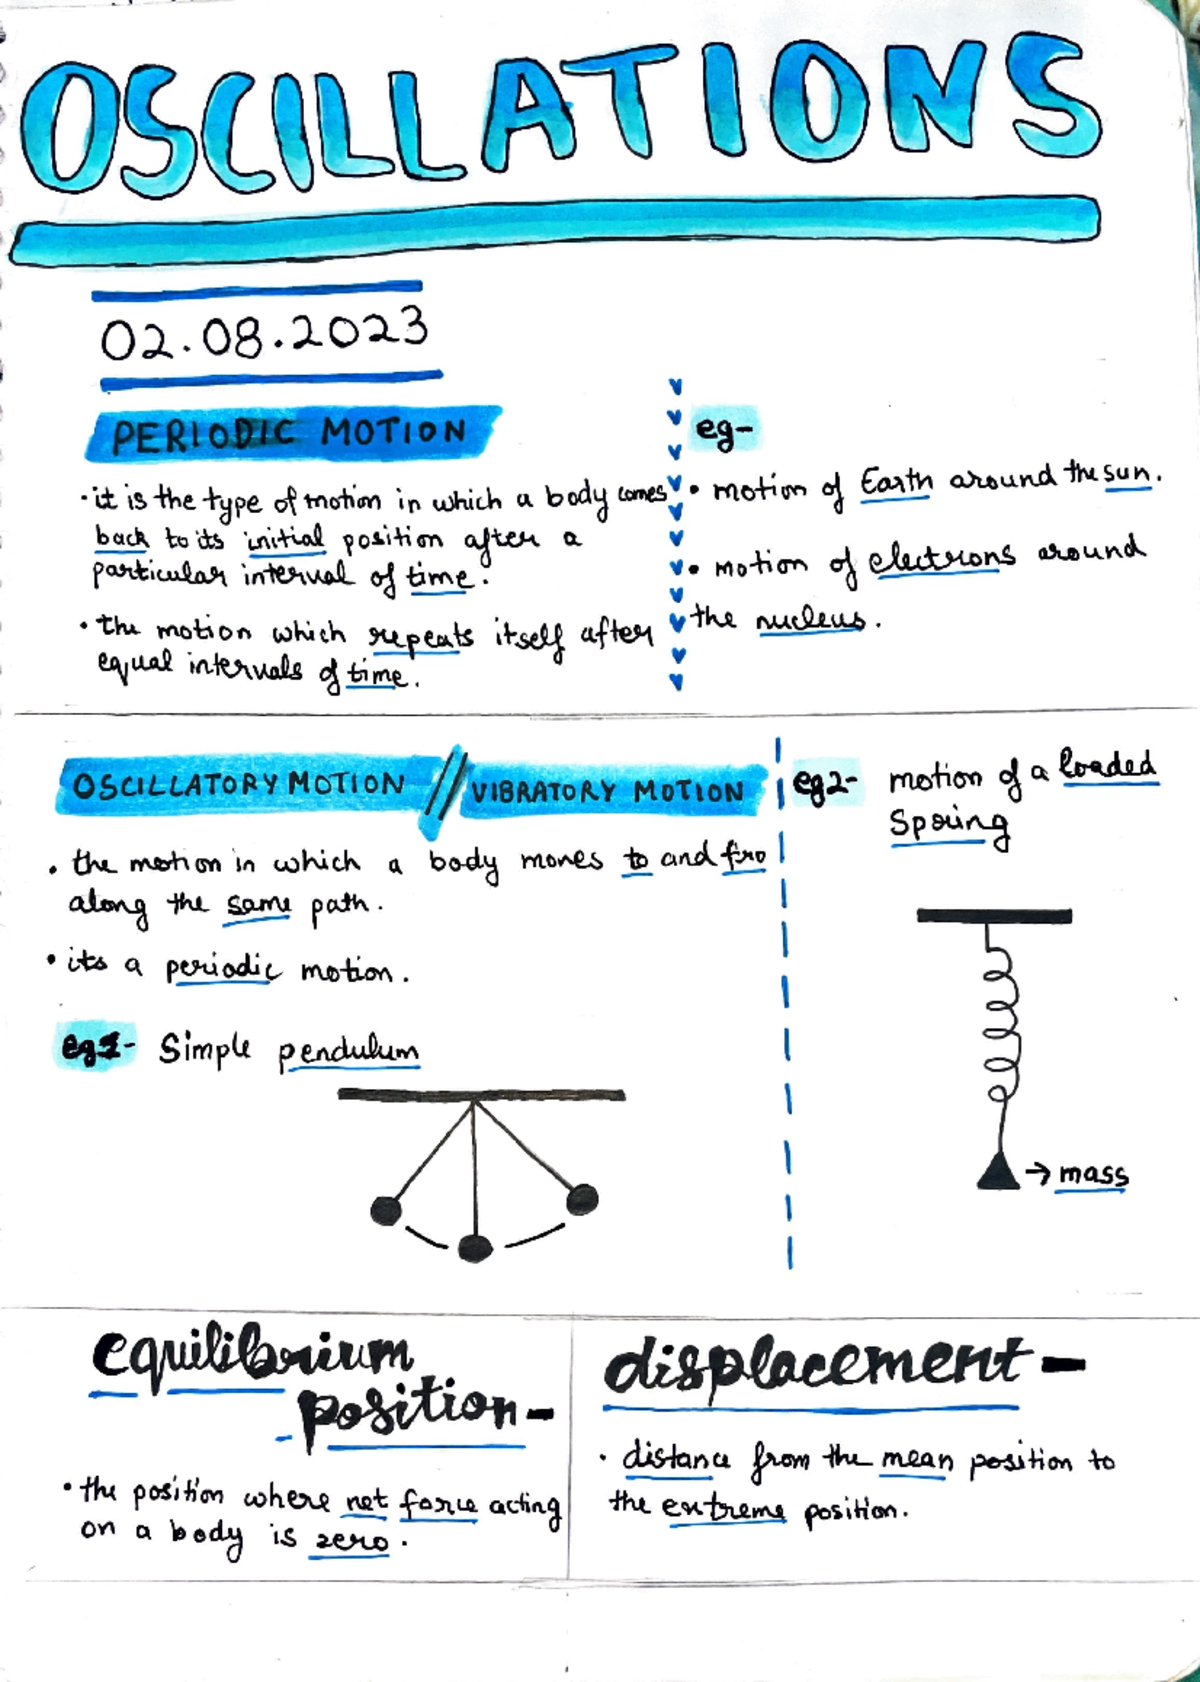 OSCILLATIONS
02.08.2023
PERIODIC MOTION
• it is the type of motion in which a body comes
back to its initial position after a
particular interval of time.
• the motion which repeats itself after
equal intervals of time.
eg-
• motion of Earth around the sun.
• motion of electrons around
the nucleus.
OSCILLATORY MOTION // VIBRATORY MOTION
• the motion in which a body moves to and fro
along the same path.
• its a periodic motion.
eg1- Simple pendulum
eg2- motion of a loaded
Spring
→ mass
equilibrium
position-
• the position where net force acting
on a body is zero.
displacement-
• distance from the mean position to
the extreme position.